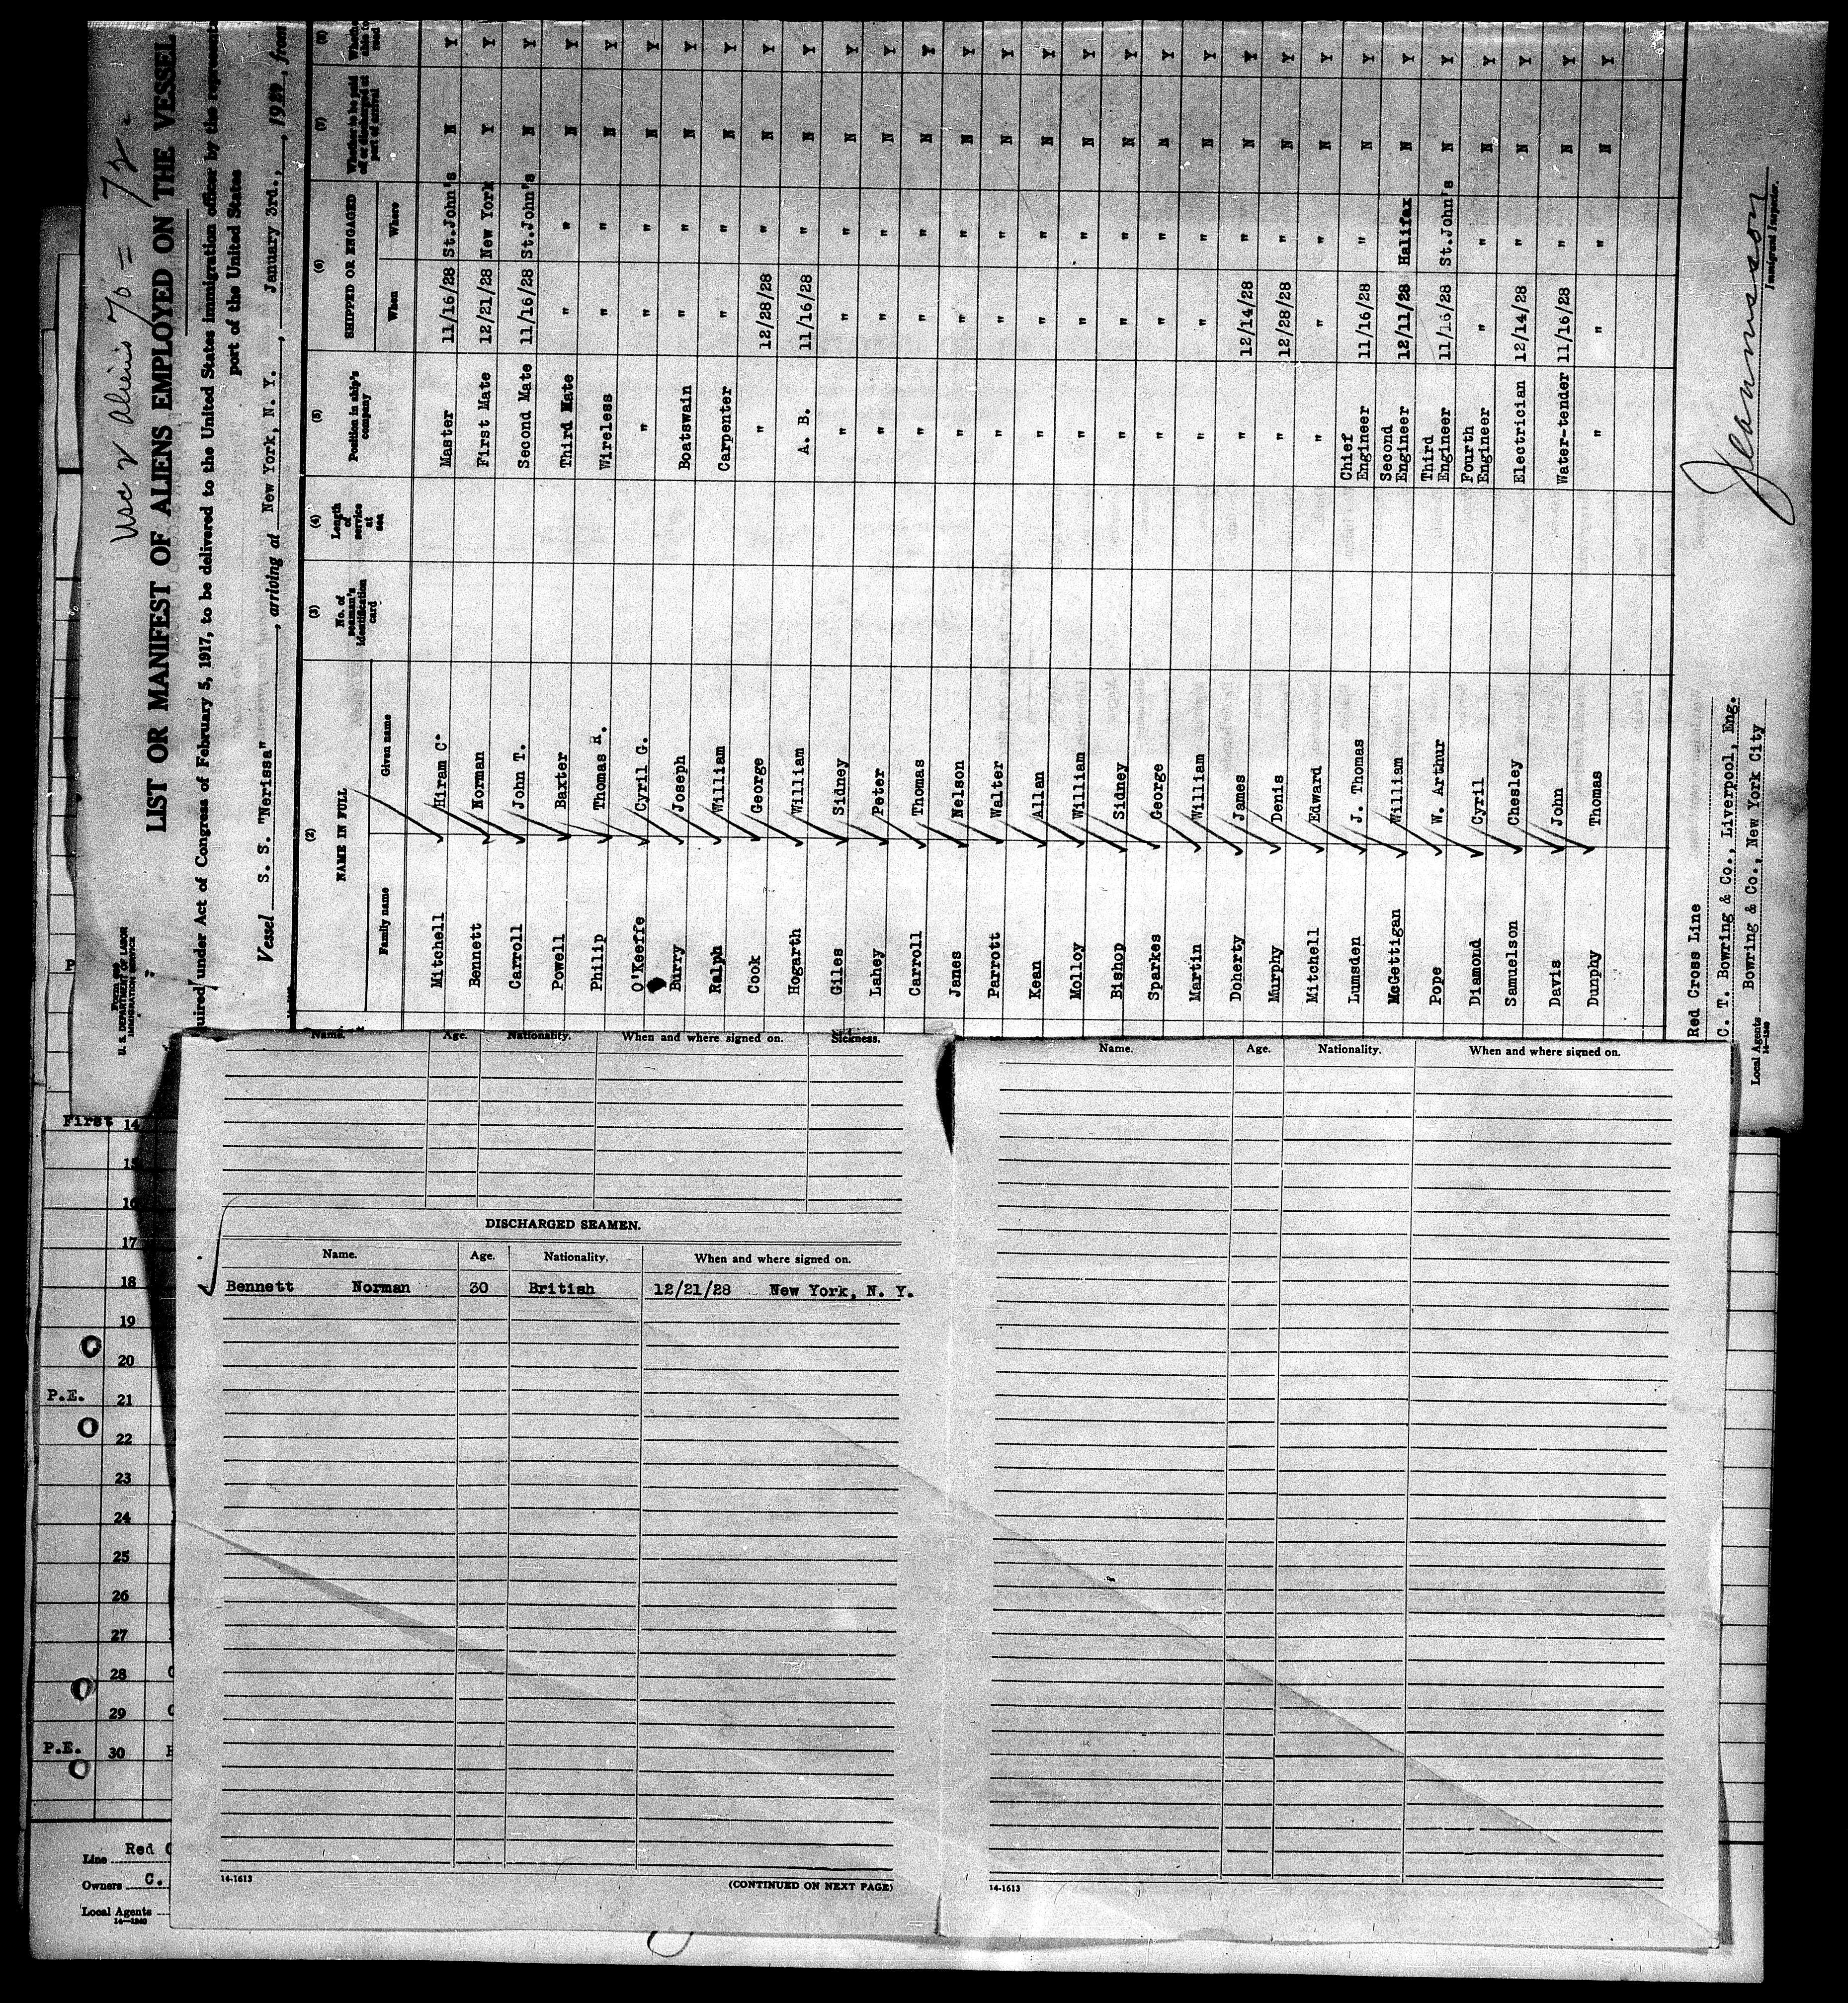 Usc 2 Aliens 70 = 72
LIST OR MANIFEST OF ALIENS EMPLOYED ON THE VESSEL
Form 689
U. S. DEPARTMENT OF LABOR
IMMIGRATION SERVICE
uired under Act of Congress of February 5, 1917, to be delivered to the United States immigration officer by the represent
port of the United States
Vessel S. S. "Nerissa", arriving at New York, N. Y., January 3rd., , 1929, from
(2) (3) (4) (5) (6) (7) (8)
NAME IN FULL No. of seaman's identification card Length of service at sea Position in ship's company SHIPPED OR ENGAGED Whether to be paid off or discharged at port of arrival Wheth able to read
Family name Given name When Where
Mitchell Hiram C. Master 11/16/28 St.John's N Y
Bennett Norman First Mate 12/21/28 New York Y Y
Carroll John T. Second Mate 11/16/28 St.John's N Y
Powell Baxter Third Mate " " N Y
Philip Thomas R. Wireless " " N Y
O'Keeffe Cyril G. " " " N Y
Burry Joseph Boatswain " " N Y
Ralph William Carpenter " " N Y
Cook George " 12/28/28 " N Y
Hogarth William A. B. 11/16/28 " N Y
Giles Sidney " " " N Y
Lahey Peter " " " N Y
Carroll Thomas " " " N Y
Janes Nelson " " " N Y
Parrott Walter " " " N Y
Kean Allan " " " N Y
Molloy William " " " N Y
Bishop Sidney " " " N Y
Sparkes George " " " N Y
Martin William " " " N Y
Doherty James " 12/14/28 " N Y
Murphy Denis " 12/28/28 " N Y
Mitchell Edward " " " N Y
Lumsden J. Thomas Chief Engineer 11/16/28 " N Y
McGettigan William Second Engineer 12/11/28 Halifax N Y
Pope W. Arthur Third Engineer 11/16/28 St.John's N Y
Diamond Cyril Fourth Engineer " " N Y
Samuelson Chesley Electrician 12/14/28 " N Y
Davis John Water-tender 11/16/28 " N Y
Dunphy Thomas " " " N Y
Red Cross Line
C. T. Bowring & Co., Liverpool, Eng.
Local Agents Bowring & Co., New York City
14—1240
Immigrant Inspector.
Name. Age. Nationality. When and where signed on. Sickness.
DISCHARGED SEAMEN.
Name. Age. Nationality. When and where signed on.
Bennett Norman 30 British 12/21/28 New York, N. Y.
14-1613
(CONTINUED ON NEXT PAGE)
Name. Age. Nationality. When and where signed on.
14-1613
First 14
15
16
17
18
19
20
P.E. 21
22
23
24
25
26
27
28
29
P.E. 30
Line Red C
Owners C.
Local Agents
14—1240